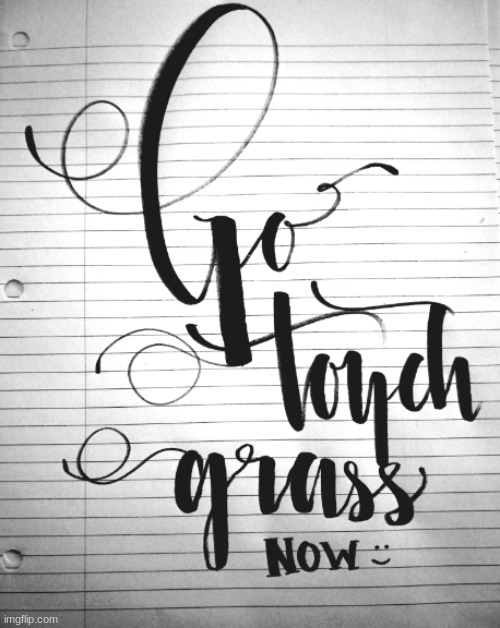 Go
touch
grass
NOW :)
imgflip.com